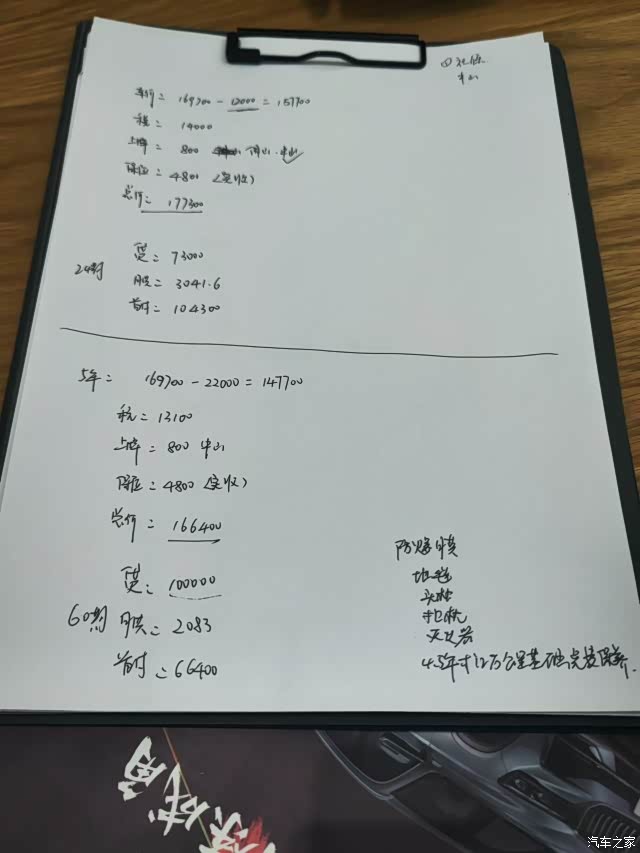 车价= 169700-12000=157700
税= 14000
上牌= 800 中山
保险=4800 (实收)
总价= 177300
24期
贷= 73000
月供= 3041.6
首付= 104300
5年= 169700-22000=147700
税=13100
上牌=800 中山
保险=4800 (实收)
总价= 166400
贷= 100000
60期 月供= 2083
首付=66400
防爆膜
地毯
头枕
抱枕
灭火器
4.5年+12万公里基础保养
汽车之家